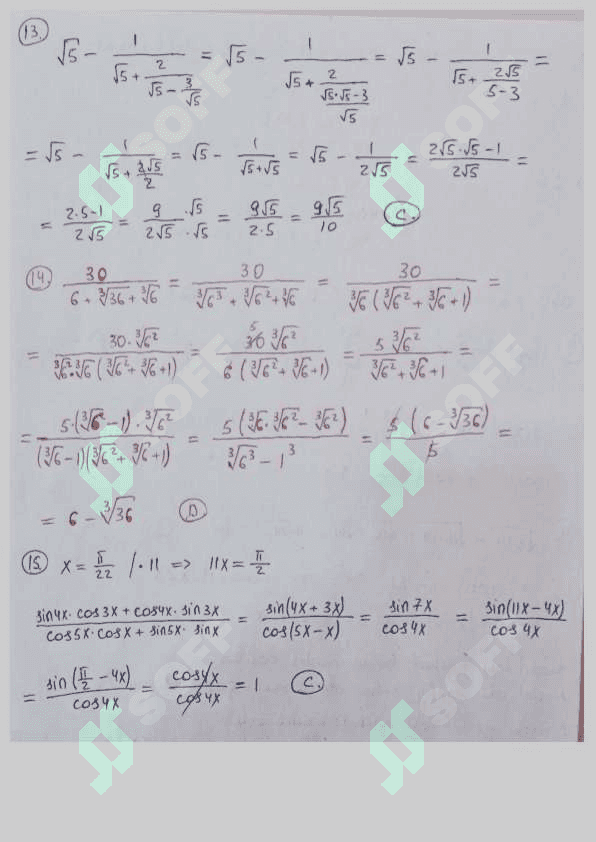 13. √5 - 1/(√5 + 2/(√5 - 3/√5)) = √5 - 1/(√5 + 2/((√5·√5-3)/√5)) = √5 - 1/(√5 + 2√5/(5-3)) =
= √5 - 1/(√5 + 2√5/2) = √5 - 1/(√5+√5) = √5 - 1/(2√5) = (2√5·√5-1)/(2√5) =
= (2·5-1)/(2√5) = 9/(2√5) ·√5/·√5 = 9√5/(2·5) = 9√5/10 C.
14. 30/(6+∛36+∛6) = 30/(∛6³+∛6²+∛6) = 30/(∛6(∛6²+∛6+1)) =
= 30·∛6²/(∛6²·∛6(∛6²+∛6+1)) = 5 30∛6²/(6(∛6²+∛6+1)) = 5∛6²/(∛6²+∛6+1) =
= 5·(∛6-1)·∛6²/((∛6-1)(∛6²+∛6+1)) = 5(∛6·∛6²-∛6²)/(∛6³-1³) = 5(6-∛36)/5 =
= 6-∛36 D
15. x = π/22 /·11 => 11x = π/2
(sin4x·cos3x+cos4x·sin3x)/(cos5x·cosx+sin5x·sinx) = sin(4x+3x)/cos(5x-x) = sin7x/cos4x = sin(11x-4x)/cos4x
= sin(π/2-4x)/cos4x = cos4x/cos4x = 1 C.
SOFF
SOFF
SOFF
SOFF
SOFF
SOFF